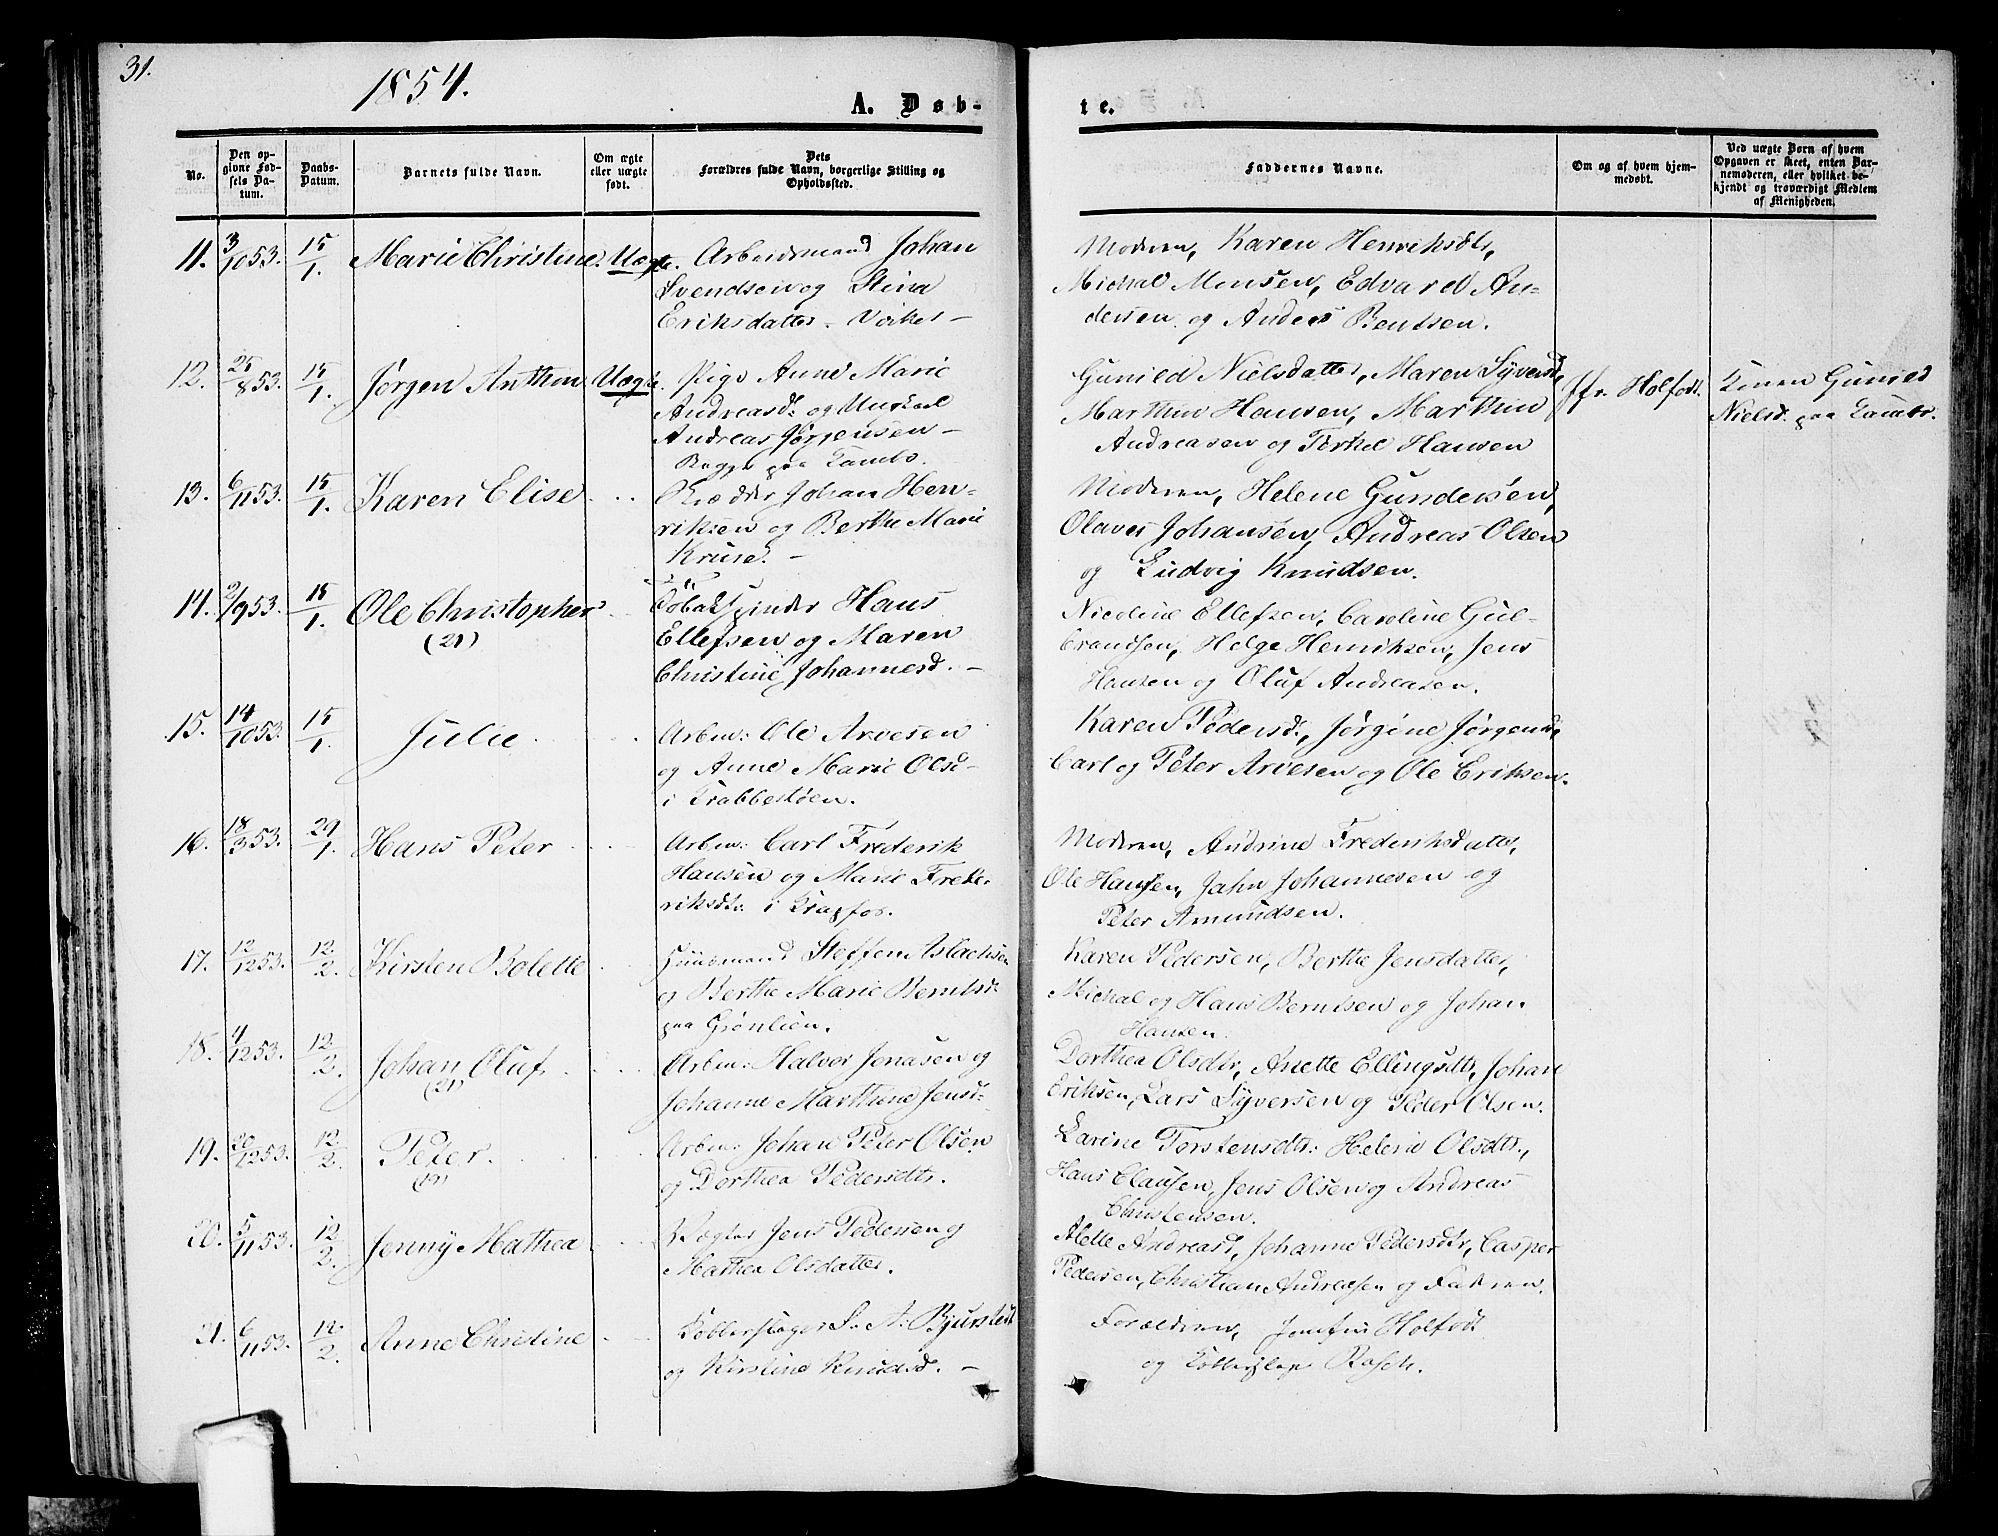 31.
1854.
A. Døb-
te.
No.
Den op-
givne Fød-
sels Da-
tum.
Daabs-
Datum.
Barnets fulde Navn.
Om ægte
eller uægte
født.
Dets
Forældres fulde Navn, borgerlige Stilling og
Opholdssted.
Faddernes Navne.
Om og af hvem hjem-
medøbt.
Ved uægte Børn af hvem
Opgaven er skeet, enten Bar-
nemoderen, eller hvilket be-
kjendt og troværdigt Medlem
af Menigheden.
11. 3/10 53. 15/1. Marie Christine. Uægte. Arbeidsmand Johan
Svendsen og Stina
Eriksdatter.
Moderen, Karen Henriksdtr,
Michal Monsen, Edvard An-
dersen og Anders Bentsen.
12. 25/8 53. 15/1. Jørgen Anthon Uægte. Pige Anne Marie
Andreasd. og Ungkarl
Andreas Jørgensen -
Bagge paa Tambs.
Gunild Nielsdatter, Maren Syversd,
Marthin Hansen, Marthin
Andreasen og Terkel Hansen
Jfr. Holfodt.
Konen Gunild
Nielsd. paa Tambs.
13. 6/11 53. 15/1. Karen Elise
Skrædder Johan Hen-
riksen og Berthe Marie
Kruse. -
Moderen, Helene Gundersen,
Olaves Johansen, Andreas Olsen
og Ludvig Knudsen.
14. 2/9 53. 15/1. Ole Christopher
(21)
Tobakspinder Hans
Ellefsen og Maren
Christine Johannesd. -
Nicoline Ellefsen, Caroline Gul-
brandsen, Helge Henriksen, Jens
Hansen og Oluf Andreasen.
15. 14/10 53. 15/1. Julie
Arbm: Ole Arvesen
og Anne Marie Olsd-
i Krabbeskoen.
Karen Pedersd., Jørgine Jørgensd,
Carl og Peter Arvesen og Ole Eriksen.
16. 18/3 53. 29/1. Hans Peter
Arbm: Carl Frederik
Hansen og Marie Frede-
riksdtr. i Krapfos.
Moderen, Andrine Frederiksdatter,
Ole Hansen, Jahn Johannesen og
Peter Amundsen.
17. 12/12 53. 12/2. Kirsten Bolette
Huusmand Steffen Aslachsen
og Berthe Marie Berntsd.
paa Grønlien.
Karen Pedersen, Berthe Jensdatter,
Michal og Hans Berntsen og Johan
Hansen.
18. 4/12 53. 12/2. Johan Oluf.
(21)
Arbm: Halvor Jonasen og
Johanne Marthine Jensd.-
Dorthea Olsdtr, Anette Ellingsdtr, Johan
Eriksen, Lars Syversen og Peder Olsen.
19. 20/12 53. 12/2. Peter.
(19)
Arbm: Johan Peter Olsen
og Dorthea Pedersdtr.
Larine Torstensdtr: Helene Olsdtr,
Hans Clausen, Jens Olsen og Andreas
Christensen.
20. 5/11 53. 12/2. Jenny Mathea
Vægter Jens Pedersen og
Mathea Olsdatter.
Alette Andreasd, Johanne Pedersdtr, Casper
Pedersen, Christian Andreasen og Faderen.
21. 6/11 53. 12/2. Anne Christine
Kobberslager S. A. Bjurstedt
og Kirstine Knudsd. -
Forældrene, Jomfru Holfodt
og Kobberslager Rasch.